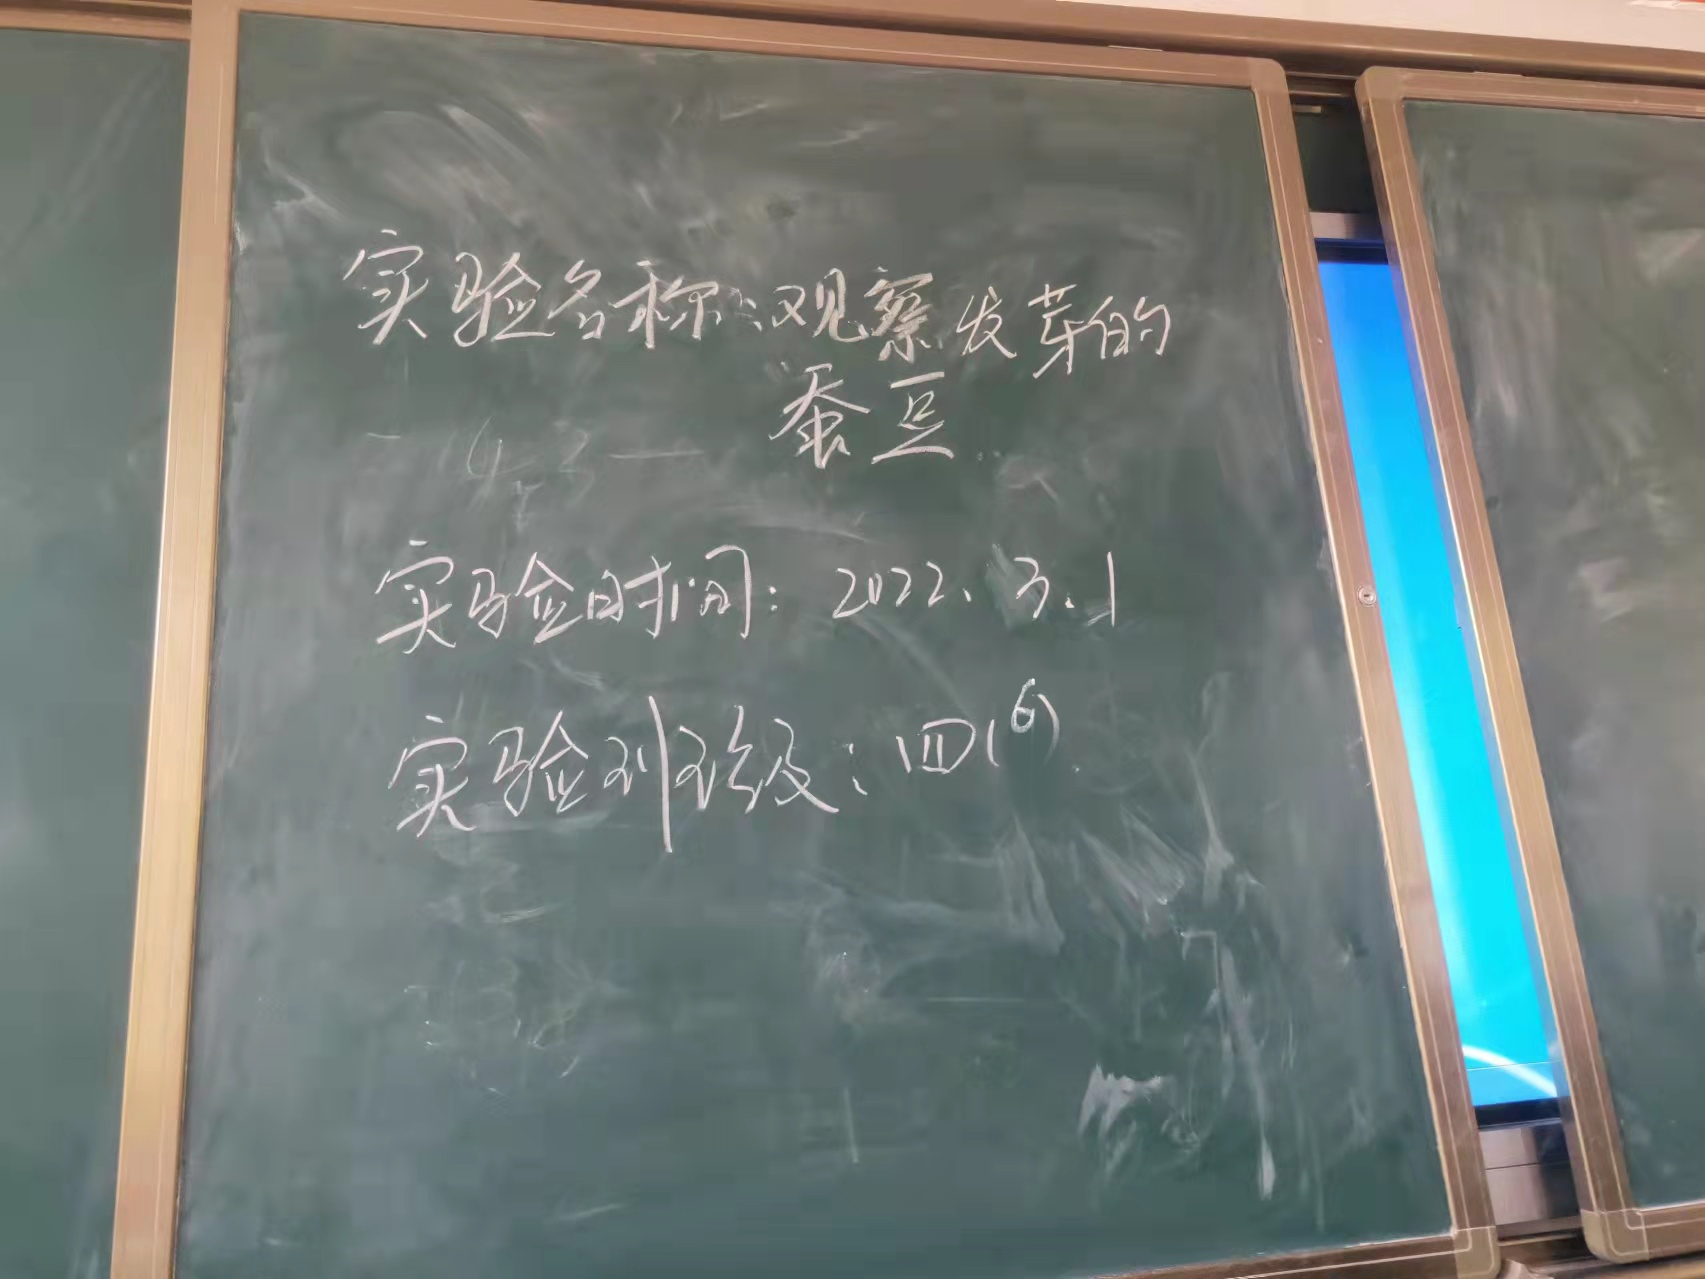 实验名称:观察发芽的
蚕豆
实验时间:2022.3.1
实验班级:四(6)